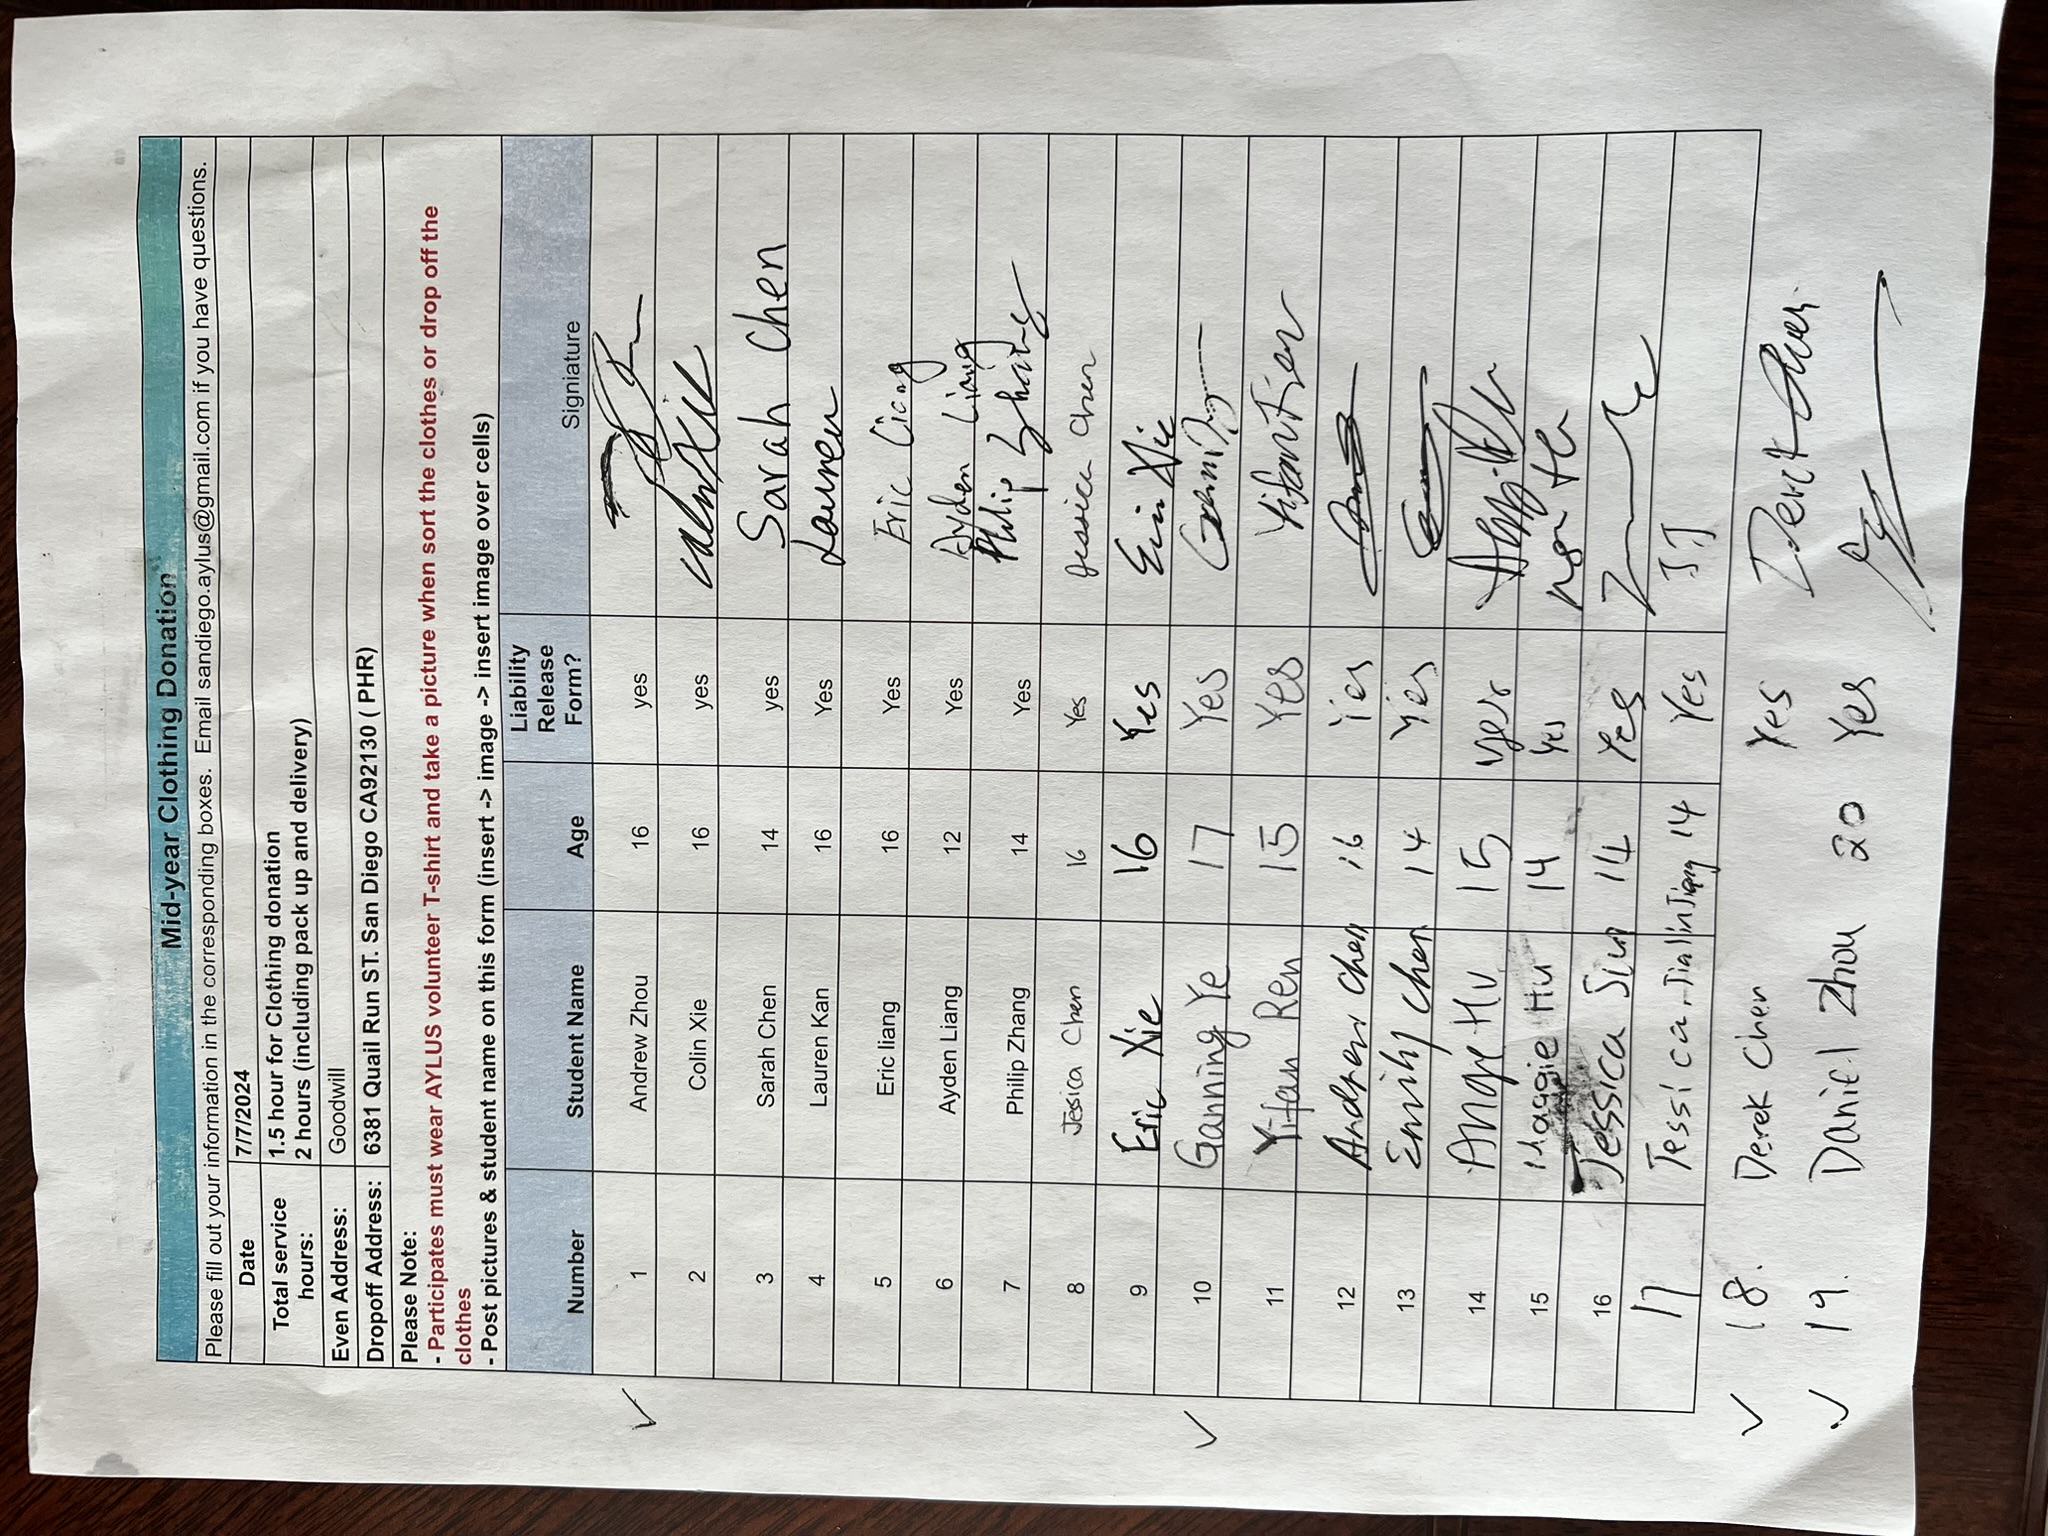 Mid-year Clothing Donation
Please fill out your information in the corresponding boxes. Email sandiego.aylus@gmail.com if you have questions.
Date 7/7/2024
Total service hours: 1.5 hour for Clothing donation
2 hours (including pack up and delivery)
Even Address: Goodwill
Dropoff Address: 6381 Quail Run ST. San Diego CA92130 ( PHR)
Please Note:
- Participates must wear AYLUS volunteer T-shirt and take a picture when sort the clothes or drop off the
clothes
- Post pictures & student name on this form (insert -> image -> insert image over cells)
Number Student Name Age Liability Release Form? Signiature
✓ 1 Andrew Zhou 16 yes
2 Colin Xie 16 yes
3 Sarah Chen 14 yes Sarah Chen
4 Lauren Kan 16 Yes Lauren
5 Eric liang 16 Yes Eric Liang
6 Ayden Liang 12 Yes Ayden Liang
7 Philip Zhang 14 Yes Philip Zhang
8 Jessica Chen 16 Yes Jessica Chen
9 Eric Xie 16 Yes Eric Xie
✓ 10 Ganning Ye 17 Yes
11 Yifan Ren 15 Yes Yifan Ren
12 Andrew Chen 16 Yes
13 Emily Chen 14 Yes
14 Angie Hu 15 yes
15 Maggie Hu 14 Yes
16 Jessica Sun 14 Yes
17 Jessica Jialin Jiang 14 Yes JJ
✓ 18. Derek Chen Yes Derek Chen
✓ 19. Daniel Zhou 20 Yes